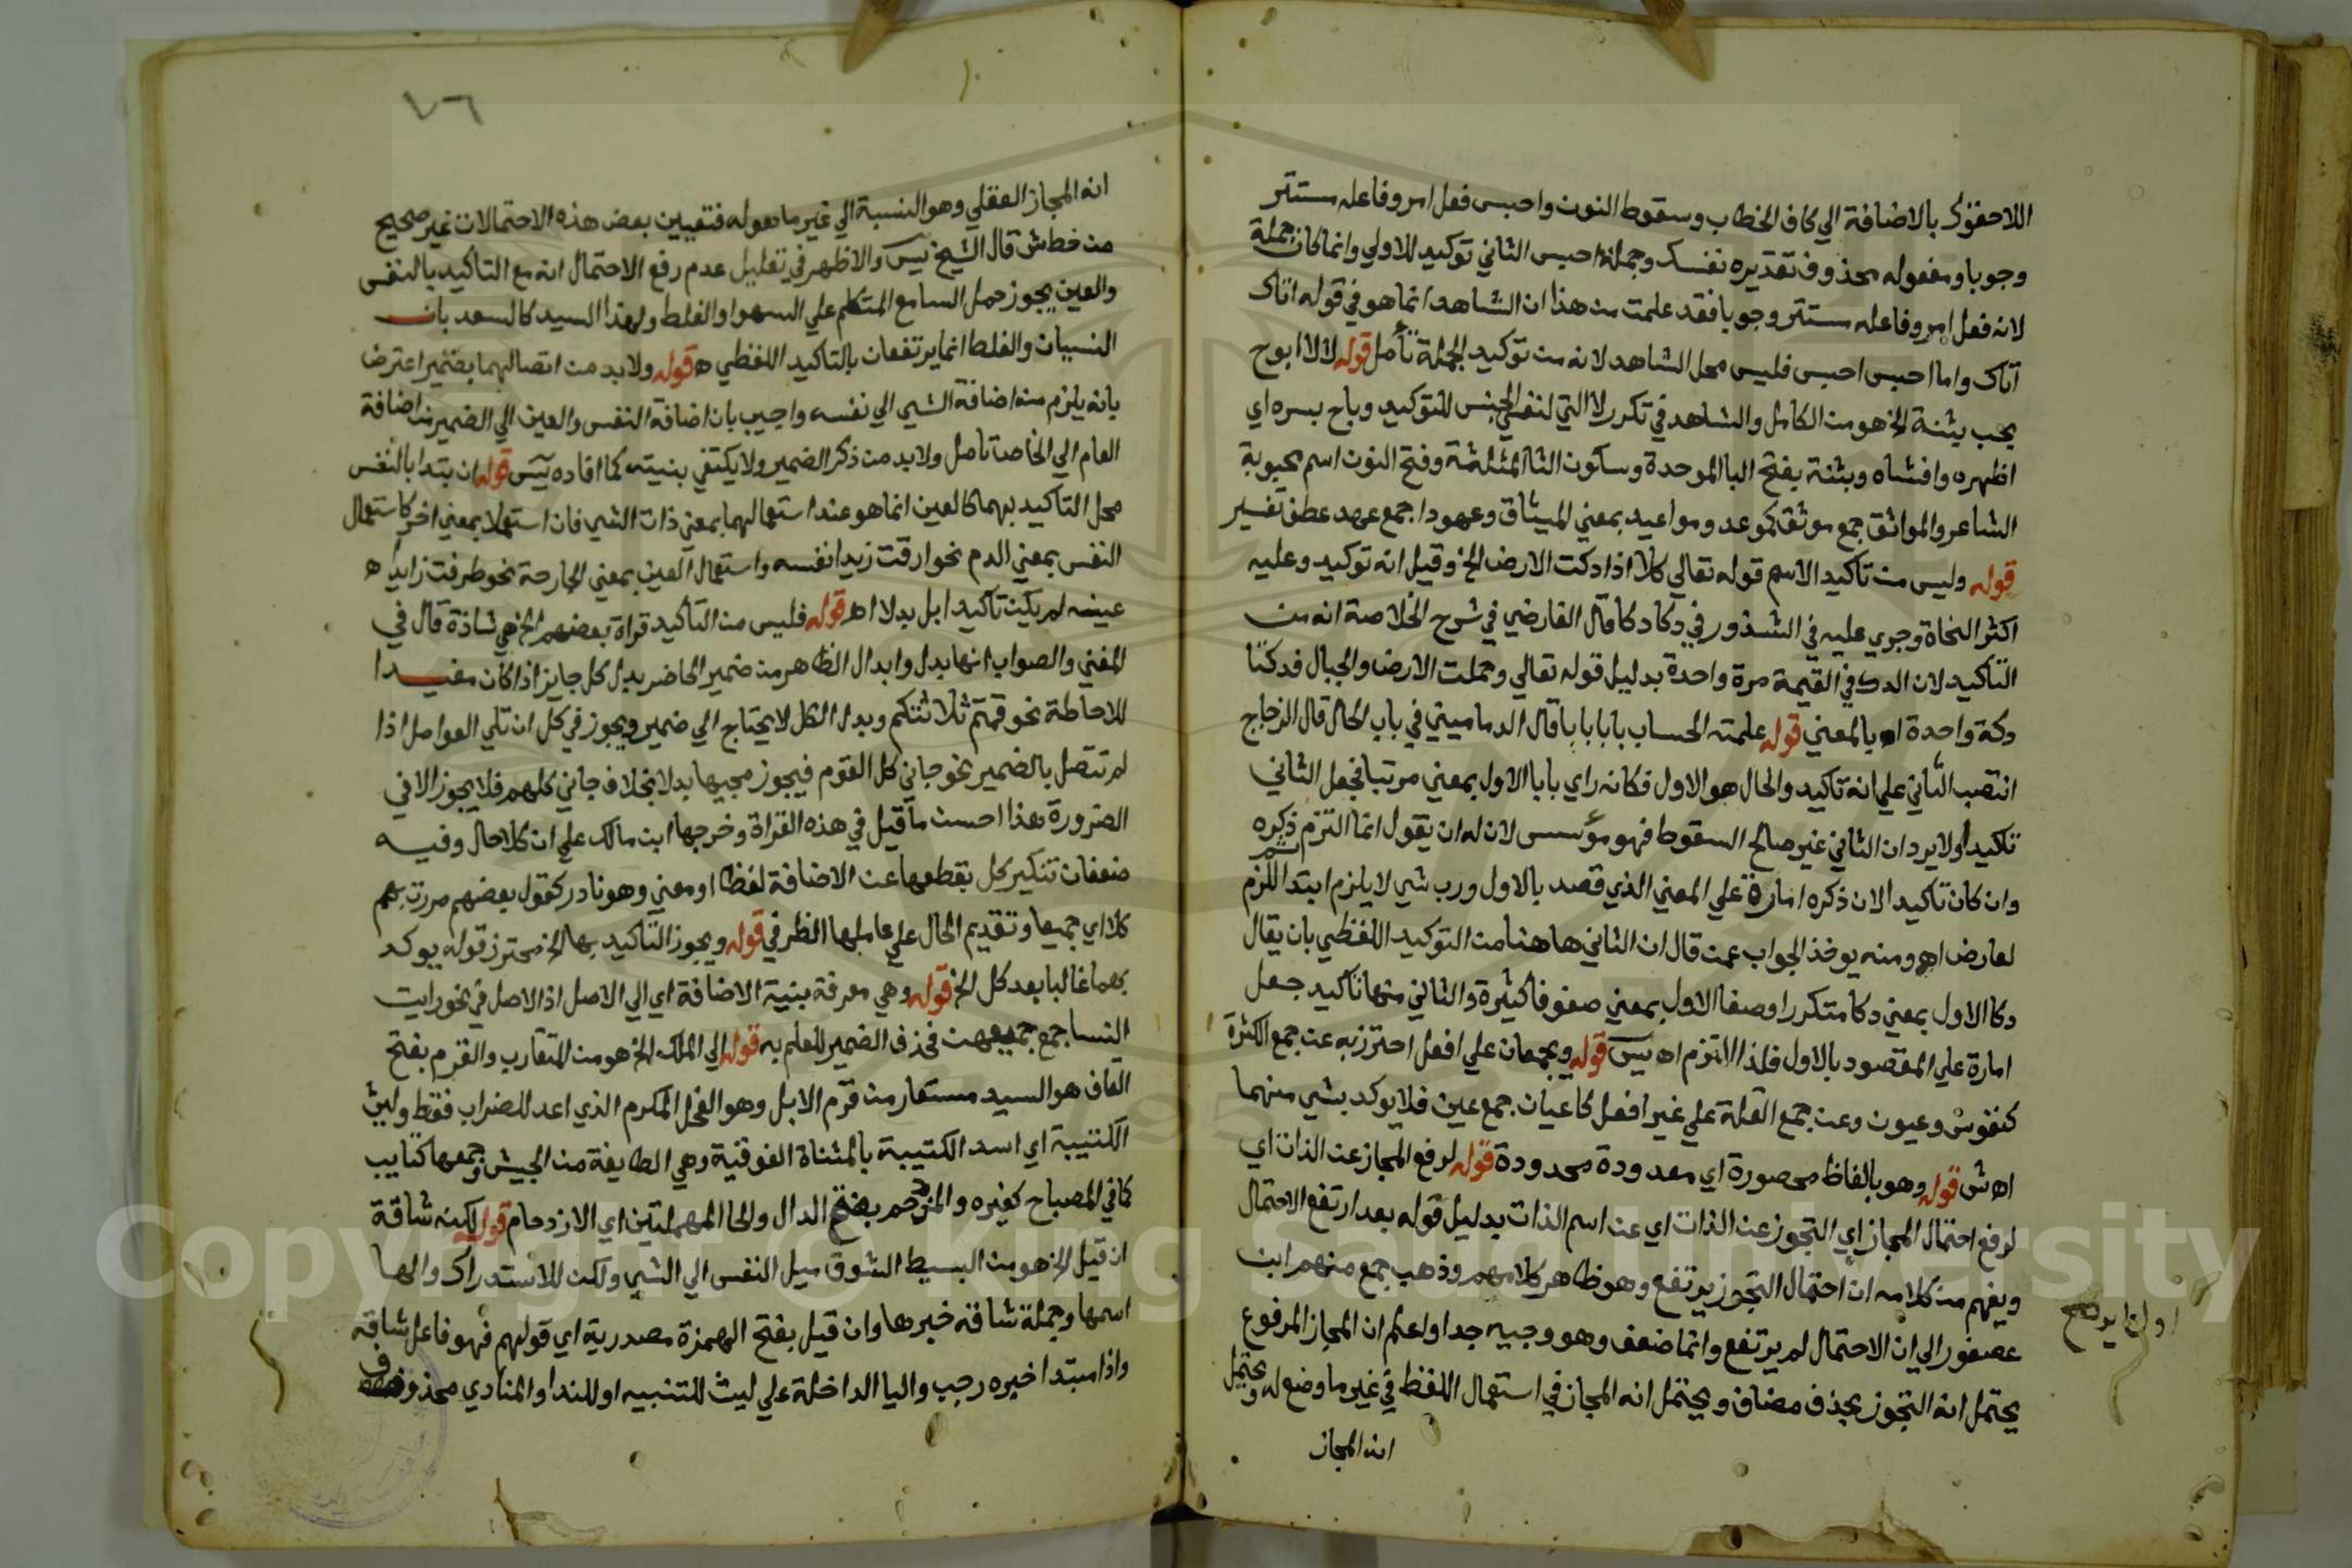 اللاحقوك بالاضافة الي كاف الخطاب وسقوط النون واحبس فعل امر وفاعله مستتر
وجوبا ومفعوله محذوف تقديره نفسك وجملة احبس الثاني توكيد للاولي وانما كان جملة
لانه فعل امر وفاعله مستتر وجوبا فقد علمت من هذا ان الشاهد انما هو في قوله اتاك
اتاك واما احبس احبس فليس محل الشاهد لانه من توكيد الجملة تأمل قوله لا لا ابوح
بحب بثنة الخ هو من الكامل والشاهد في تكرر لا التي لنفي الجنس للتوكيد وباح بسره اي
اظهره وافشاه وبثنة بفتح البا الموحدة وسكون الثا المثلثة وفتح النون اسم محبوبة
الشاعر والمواثق جمع موثق كموعد ومواعيد بمعني الميثاق وعهودا جمع عهد عطف تفسير
قوله وليس من تاكيد الاسم قوله تعالي كلا اذا دكت الارض الخ وقيل انه توكيد وعليه
اكثر النحاة وجري عليه في الشذور في دكا دكا قال الفارضي في شرح الخلاصة انه من
التاكيد لان الدك في القيمة مرة واحدة بدليل قوله تعالي وحملت الارض والجبال فدكتا
دكة واحدة اه بالمعني قوله علمته الحساب بابا بابا قال الدماميني في باب الحال قال الزجاج
انتصب الثاني علي انه تاكيد والحال هو الاول فكانه راي بابا الاول بمعني مرتبا فجعل الثاني
تاكيدا ولا يرد ان الثاني غير صالح السقوط فهو مؤسس لان له ان يقول انما التزم ذكره
وان كان تاكيد الان ذكره امارة علي المعني الذي قصد بالاول ورب شي لا يلزم ابتدا ثم لزم
لعارض اه ومنه يوخذ الجواب عمن قال ان الثاني هاهنا من التوكيد اللفظي بان يقال
دكا الاول بمعني دكا متكررا وصفا الاول بمعني صفوفا كثيرة والثاني منها تاكيد جعل
امارة علي المقصود بالاول فلذا التزم اه يس قوله ويجمعان علي افعل احترز به عن جمع الكثرة
كنفوس وعيون وعن جمع القلة علي غير افعل كاعيان جمع عين فلا يوكد بشي منهما
اه ش قوله وهو بالفاظ محصورة اي معدودة محدودة قوله لرفع المجاز عن الذات اي
لرفع احتمال المجاز اي التجوز عن الذات اي عن اسم الذات بدليل قوله بعد ارتفع الاحتمال
ويفهم من كلامه ان احتمال التجوز يرتفع وهو ظاهر كلامهم وذهب جمع منهم ابن
عصفور الي ان الاحتمال لم يرتفع وانما ضعف وهو وجيه جدا واعلم ان المجاز المرفوع
يحتمل انه التجوز بحذف مضاف ويحتمل انه المجاز في استعمال اللفظ في غير ما وضع له ويحتمل
انه المجاز
٧٦
انه المجاز العقلي وهو النسبة الي غير ما هو له فتعيين بعض هذه الاحتمالات غير صحيح
من خط ش قال الشيخ يس والاظهر في تعليل عدم رفع الاحتمال انه مع التاكيد بالنفس
والعين يجوز حمل السامع المتكلم علي السهو او الغلط ولهذا السيد كالسعد بان
النسيان والغلط انما يرتفعان بالتاكيد اللفظي اه قوله ولا بد من اتصالهما بضمير اعترض
بانه يلزم منه اضافة الشي الي نفسه واجيب بان اضافة النفس والعين الي الضمير من اضافة
العام الي الخاص تامل ولا بد من ذكر الضمير ولا يكتفي بنيته كما افاده يس قوله ان بتدا بالنفس
محل التاكيد بهما كالعين انما هو عند استعمالهما بمعني ذات الشي فان استعملا بمعني اخر كاستعمال
النفس بمعني الدم نحو ارقت زيدا نفسه واستعمال العين بمعني الجارحة نحو طرفت زايدا
عينه لم يكن تاكيدا بل بدلا اه قوله فليس من التاكيد قراة بعضهم الخ هي شاذة قال في
المغني والصواب انها بدل وابدال الظاهر من ضمير الحاضر بدل كل جايز اذا كان مفيدا
للاحاطة نحو قمتم ثلاثتكم وبدل الكل لا يحتاج الي ضمير ويجوز في كل ان تلي العوامل اذا
لم تتصل بالضمير نحو جاني كل القوم فيجوز مجيها بدلا بخلاف جاني كلهم فلا يجوز الا في
الضرورة هذا احسن ما قيل في هذه القراة وخرجها ابن مالك علي ان كلا حال وفيه
ضعفان تنكير كل بقطعها عن الاضافة لفظا ومعني وهو نادر كقول بعضهم مررت بهم
كلا اي جميعا وتقديم الحال علي عاملها الظرفي قوله ويجوز التاكيد بها الخ محترز قوله يوكد
بهما غالبا بعد كل الخ قوله وهي معرفة بنية الاضافة اي الي الاصل اذ الاصل في نحو رايت
النسا جمع جميعهن فحذف الضمير للعلم به قوله الي الملك الخ هو من المتقارب والقرم بفتح
القاف هو السيد مستعار من قرم الابل وهو الفحل المكرم الذي اعد للضراب فقط وليث
الكتيبة اي اسد الكتيبة بالمثناة الفوقية وهي الطايفة من الجيش وجمعها كتايب
كما في المصباح كغيره والمزدحم بفتح الدال والحا المهملتين اي الازدحام قوله لكنه شاقه
ان قيل الخ هو من البسيط الشوق ميل النفس الي الشي ولكن للاستدراك والها
اسمها وجملة شاقه خبرها وان قيل بفتح الهمزة مصدرية اي قولهم فهو فاعل شاقه
واذا مبتدا خبره رجب واليا الداخلة علي ليث للتنبيه او للندا والمنادي محذوف